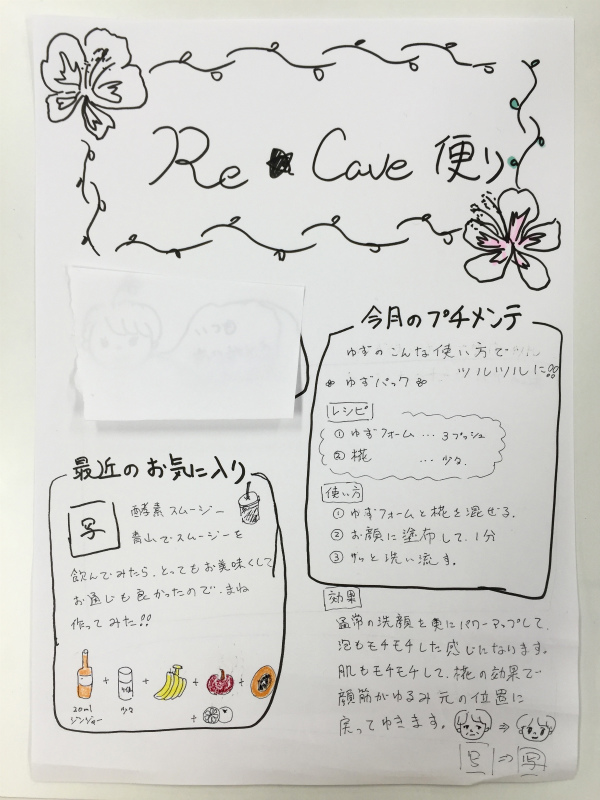 Re★Cave 便り
最近のお気に入り
写
酵素スムージー
青山でスムージーを
飲んでみたら、とってもお美味くして
お通じも良かったので、まね
作ってみた!!
20ml
ジンジャー
少々
今月のプチメンテ
ゆずのこんな使い方で
ツルツルに!!
ゆずパック
レシピ
① ゆずフォーム … 3プッシュ
② 椛 … 少々
使い方
① ゆずフォームと椛を混ぜる。
② お顔に塗布して、1分
③ サッと洗い流す。
効果
通常の洗顔を更にパワーアップして、
泡もモチモチした感じになります。
肌もモチモチして、椛の効果で
顔筋がゆるみ元の位置に
戻ってゆきます。
写 ⇒ 写